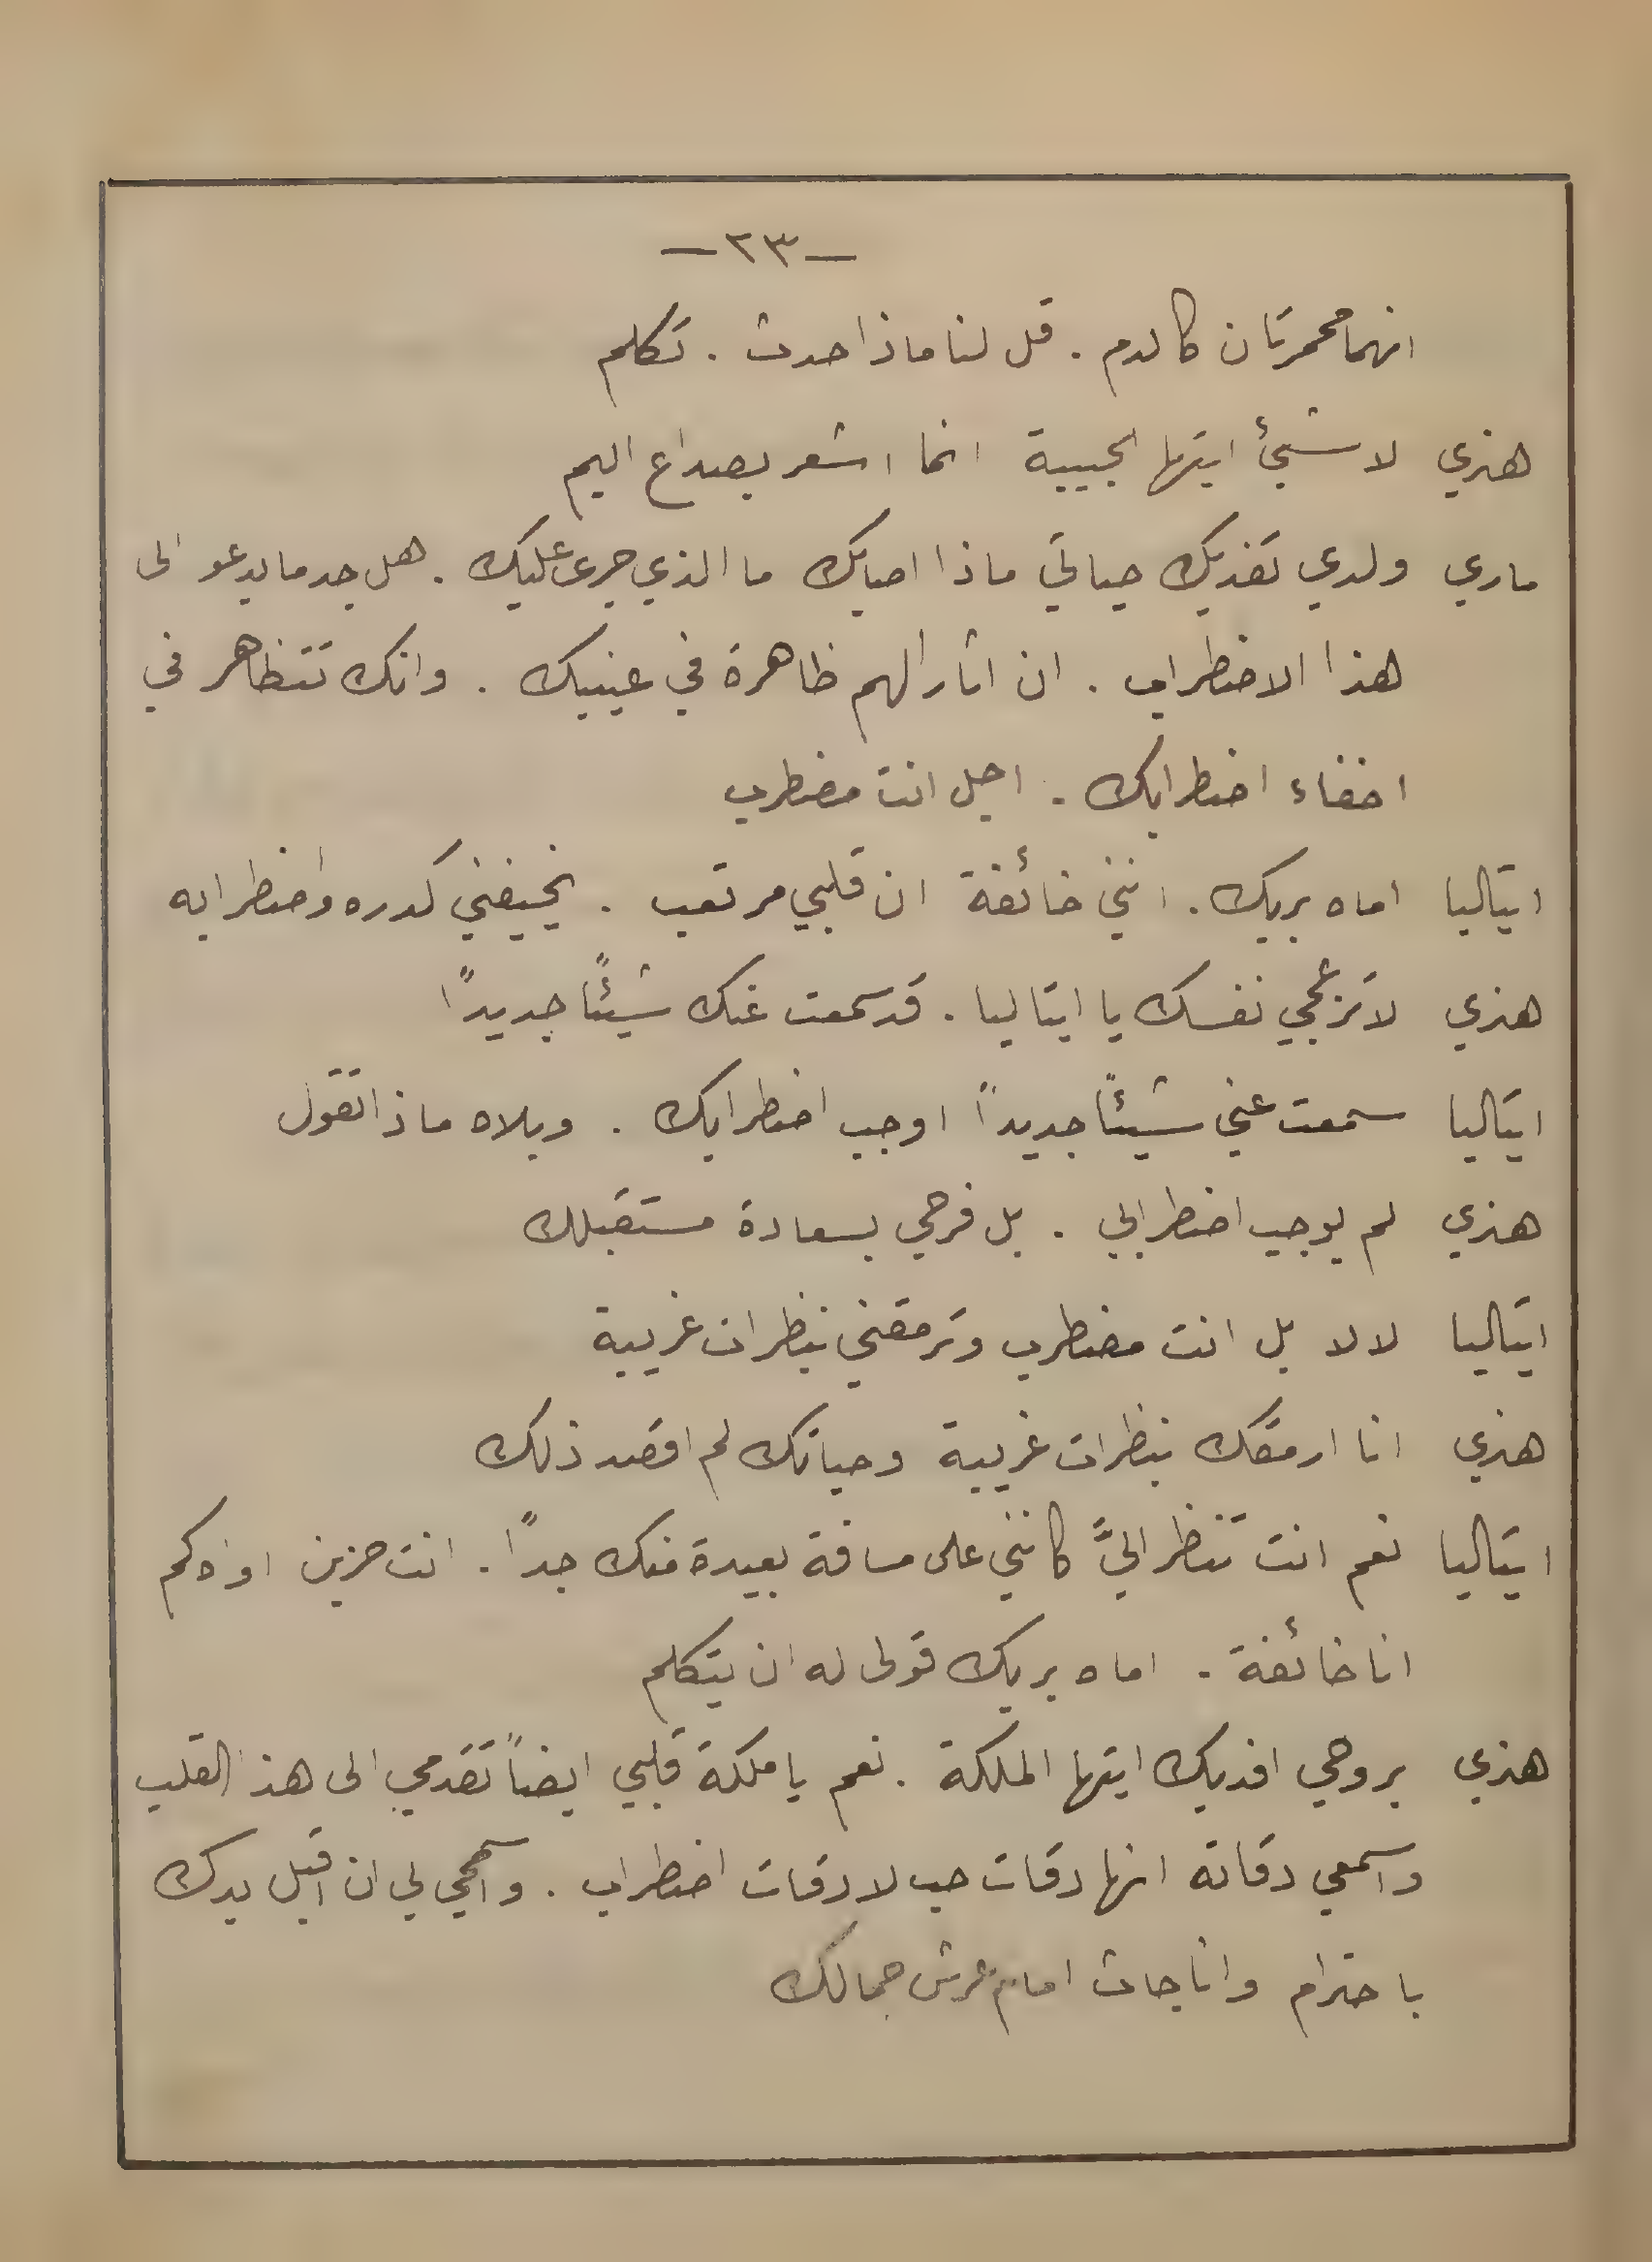 —٢٣—
انهما محمرتان كالدم . قل لنا ماذا حدث . تكلم
هنري لا شيئ ايتها الحبيبة انما اشعر بصداع اليم
ماري ولدي تفديك حياتي ماذا اصابك ما الذي جرى عليك . هل جد ما يدعو الى
هذا الاضطراب . ان اثار الهم ظاهرة في عينيك . وانك تتظاهر في
اخفاء اضطرابك . اجل انت مضطرب
ايتاليا اماه بربك . انني خائفة ان قلبي مرتعب . يخيفني كدره واضطرابه
هنري لا تزعجي نفسك يا ايتاليا . قد سمعت عنك شيئًا جديدًا
ايتاليا سمعت عني شيئًا جديدًا اوجب اضطرابك . ويلاه ماذا تقول
هنري لم يوجب اضطرابي . بل فرحي بسعادة مستقبلك
ايتاليا لا لا بل انت مضطرب وترمقني بنظرات غريبة
هنري انا ارمقك بنظرات غريبة وحياتك لم اقصد ذلك
ايتاليا نعم انت تنظر اليَّ كانني على مسافة بعيدة منك جدًا . انت حزين اواه كم
انا خائفة . اماه بربك قولى له ان يتكلم
هنري بروحي افديك ايتها الملكة . نعم يا ملكة قلبي ايضاً تقدمي الى هذا القلب
واسمعي دقاته انها دقات حب لا دقات اضطراب . واسمحي لي ان اقبل يدك
باحترام وانا جاث امام عرش جمالك